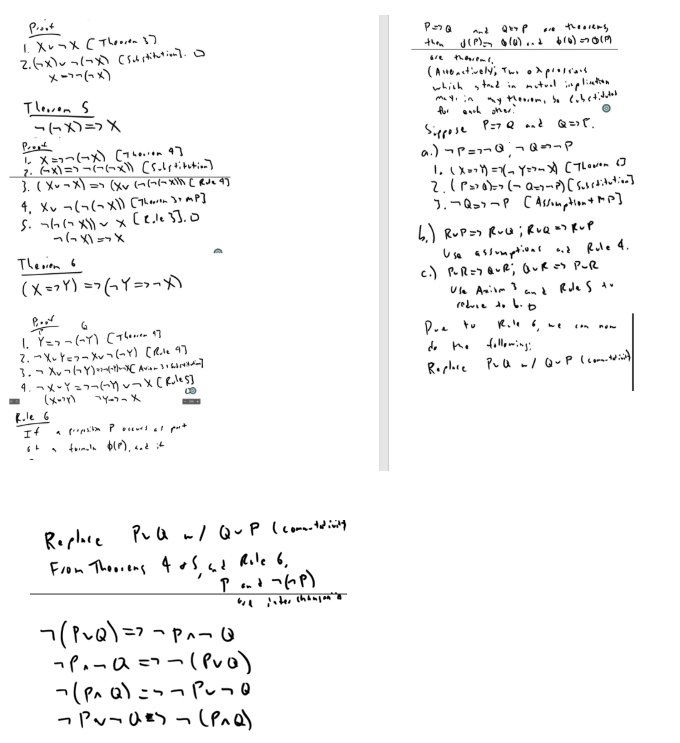 Proof
1. X∨¬X [Theorem 3]
2. (¬X)∨¬(¬X) [Substitution]. □
X=>¬(¬X)
Theorem 5
¬(¬X)=>X
Proof
1. X=>¬(¬X) [Theorem 4]
2. (¬X)=>¬(¬(¬X)) [Substitution]
3. (X∨¬X)=>(X∨(¬(¬(¬X))) [Rule 4]
4. X∨¬(¬(¬X)) [Theorem 3+MP]
5. ¬(¬(¬X))∨X [Rule 3]. □
¬(¬X)=>X
Theorem 6
(X=>Y)=>(¬Y=>¬X)
Proof
1. Y=>¬(¬Y) [Theorem 4]
2. ¬X∨Y=>¬X∨¬(¬Y) [Rule 4]
3. ¬X∨¬(¬Y)=>¬(¬Y)∨¬X [Axiom 3+Substitution]
4. ¬X∨Y=>¬(¬Y)∨¬X [Rule 5]
(X=>Y) ¬Y=>¬X
Rule 6
If a proposition P occurs as part
of a formula ϕ(P), and if
P=>Q and Q=>P are theorems,
then ϕ(P)=>ϕ(Q) and ϕ(Q)=>ϕ(P)
are theorems.
(Alternatively, Two expressions
which stand in mutual implication
may, in any theorem, be substituted
for each other.
Suppose P=>Q and Q=>P.
a.) ¬P=>¬Q; ¬Q=>¬P
1. (X=>Y)=>(¬Y=>¬X) [Theorem 6]
2. (P=>Q)=>(¬Q=>¬P) [Substitution]
3. ¬Q=>¬P [Assumption+MP]
b.) R∨P=>R∨Q; R∨Q=>R∨P
Use assumptions and Rule 4.
c.) P∨R=>Q∨R; Q∨R=>P∨R
Use Axiom 3 and Rule 5 to
reduce to b. □
Due to Rule 6, we can now
do the following:
Replace P∨Q w/ Q∨P (commutativity)
Replace P∨Q w/ Q∨P (commutativity)
From Theorems 4+5, and Rule 6,
P and ¬(¬P)
are interchangeable
¬(P∨Q)=>¬P∧¬Q
¬P∧¬Q=>¬(P∨Q)
¬(P∧Q)=>¬P∨¬Q
¬P∨¬Q=>¬(P∧Q)